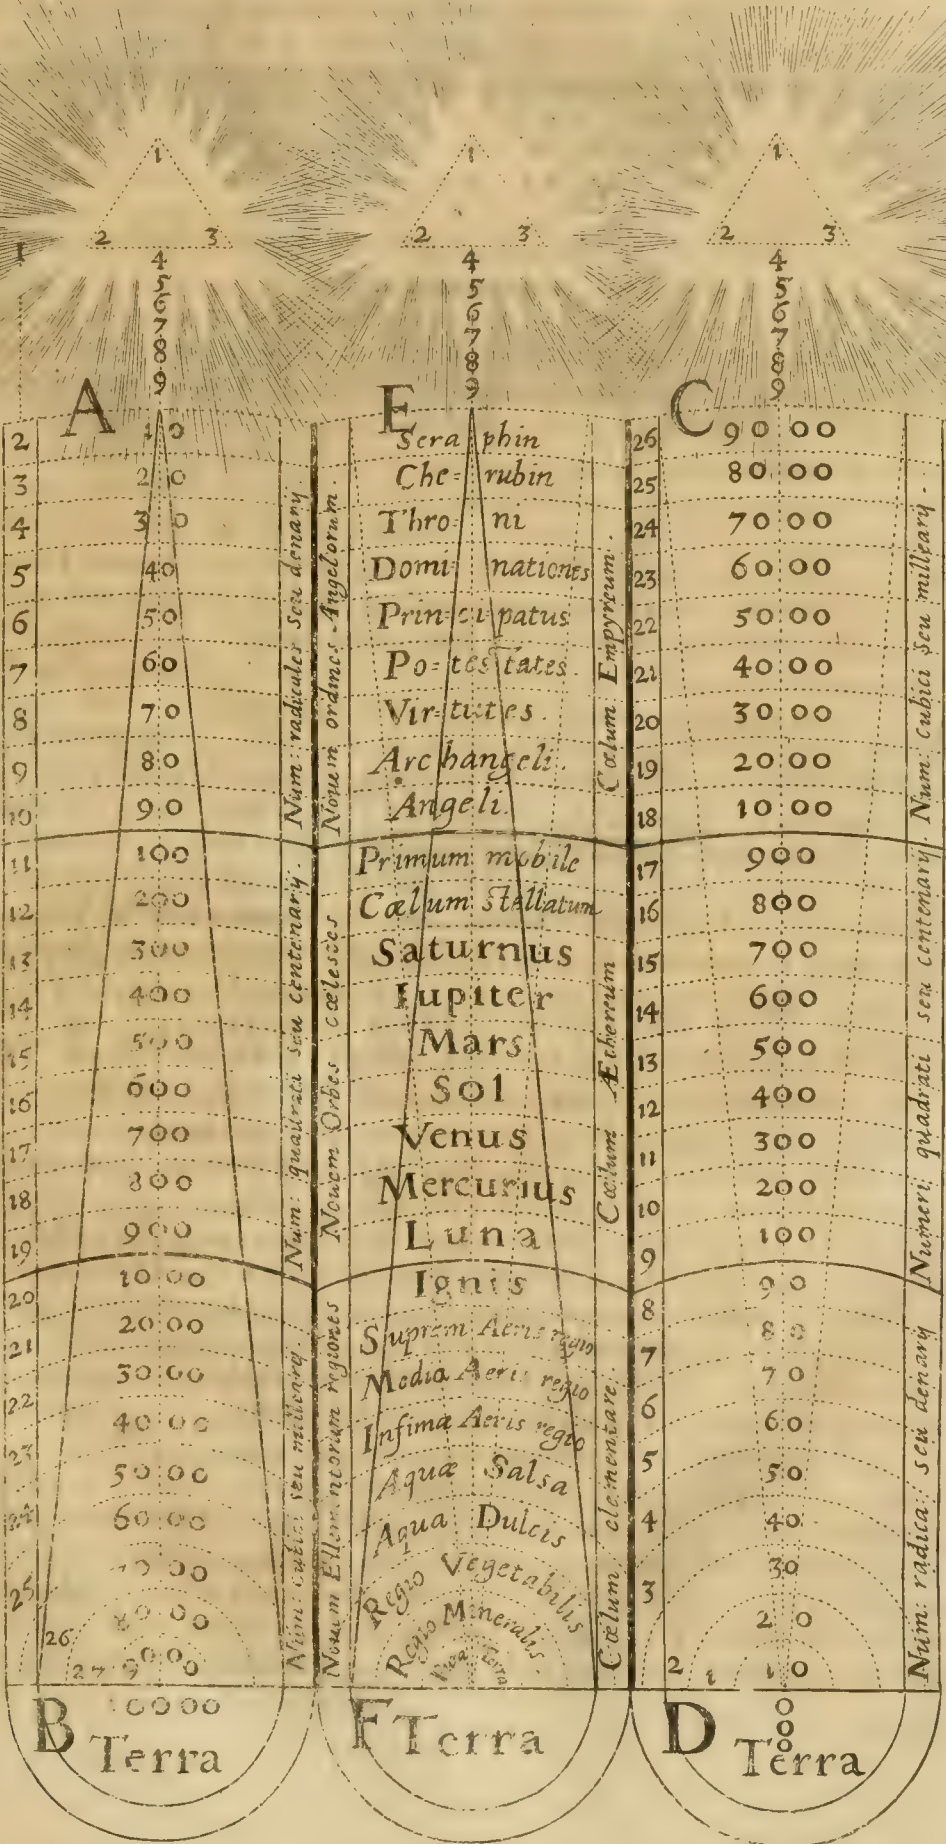 1
2 3
4
5
6
7
8
9
1
2 3
4
5
6
7
8
9
1
2 3
4
5
6
7
8
9
1
A
2 10
3 20
4 30
5 40
6 50
7 60
8 70
9 80
10 90
11 100
12 200
13 300
14 400
15 500
16 600
17 700
18 800
19 900
20 1000
21 2000
22 3000
23 4000
5000
6000
25
26
27 9000
Num: radicales seu denary.
Num: quadrati seu centenary.
Num: cubici seu milleary.
B 10000
Terra
E
Nouem ordines Angelorum.
Nouem Orbes cælestes
Nouem Ellementorum regiones
Sera phin
Che= rubin
Thro= ni
Domi= nationes
Prin=ci patus
Po=testates.
Vir=tutes.
Archangeli.
Angeli.
Primum mobile
Cœlum stellatum
Saturnus
Iupiter
Mars
Sol
Venus
Mercurius
Luna
Ignis
Suprem Aeris regio
Media Aeris regio
Infimæ Aeris regio
Aquæ Salsa
Aqua Dulcis
Regio Vegetabilis
Regio Mineralis.
Terra
F Terra
Cœlum Empyreum.
Cœlum Æthereum
Cœlum elementare.
C
26 9000
25 8000
24 7000
23 6000
22 5000
21 4000
20 3000
19 2000
18 1000
17 900
16 800
15 700
14 600
13 500
12 400
11 300
10 200
9 100
8 90
7 80
6 70
5 60
4 50
3 40
30
20
2 1 10
Num: Cubici seu milleary.
Numeri quadrati seu centenary.
Num: radica: seu denary
D 0
0
0
Terra